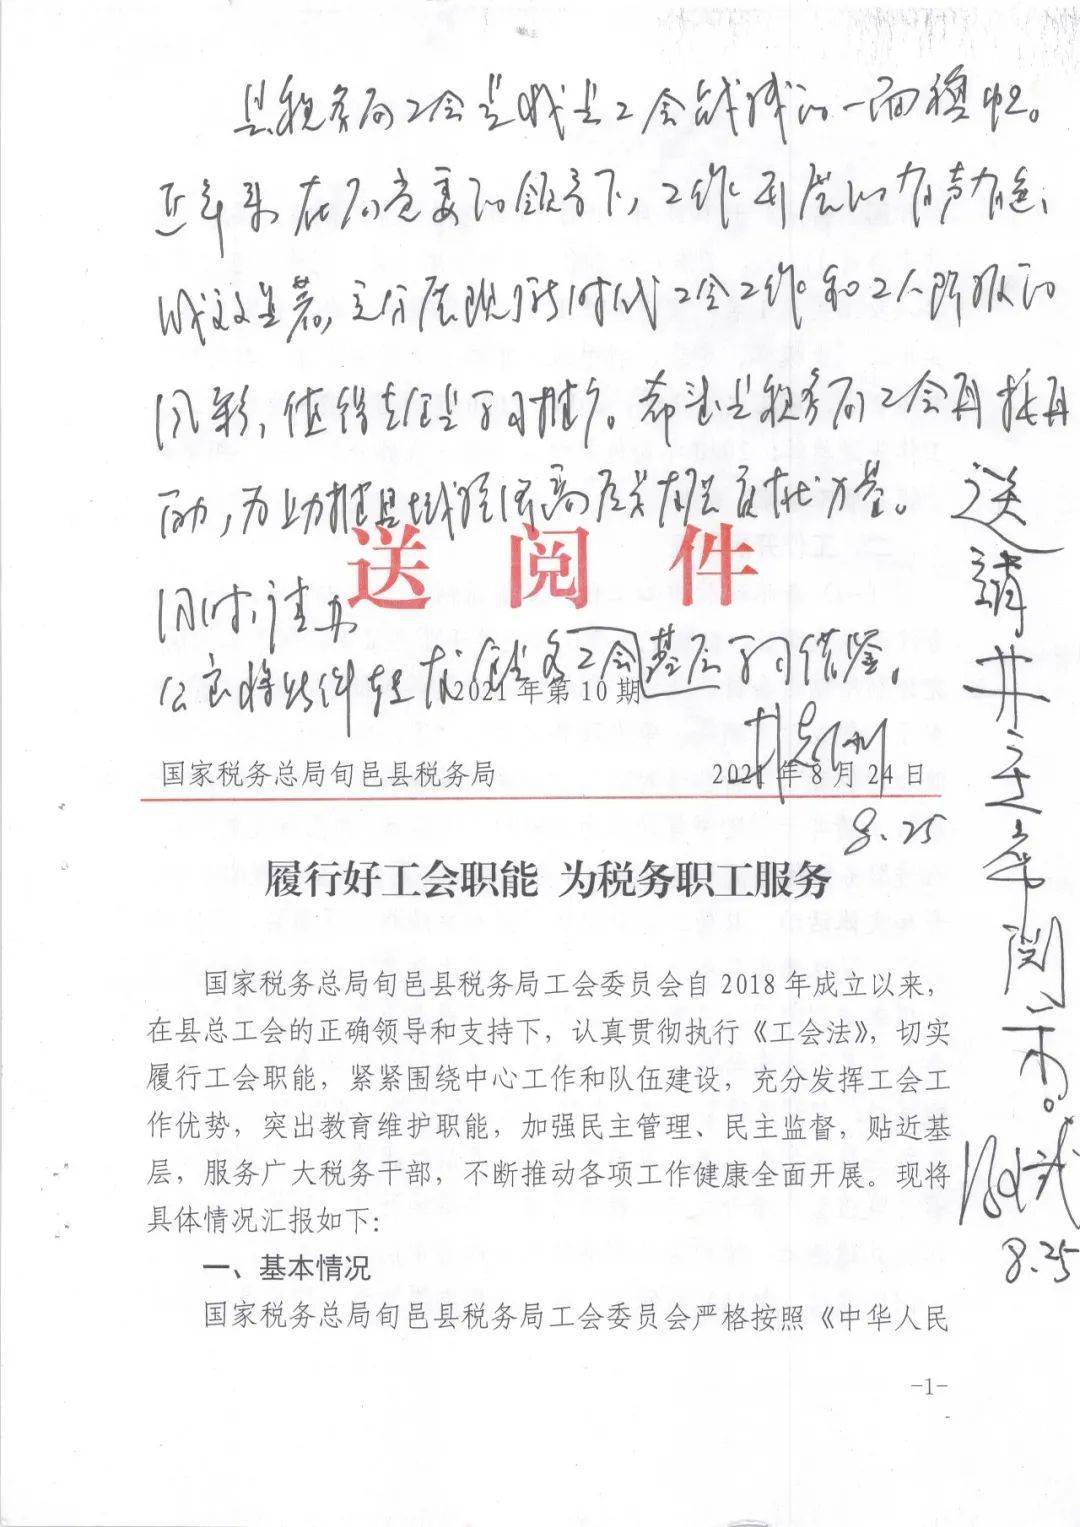 县税务局工会是我县工会战线的一面旗帜。
近年来在局党委的领导下，工作开展的有声有色，
成效显著，充分展现了新时代工会工作和工人阶级的
风彩，值得全县学习推广。希望县税务局工会再接再
励，为助推县域经济高质量发展贡献力量。
送阅件
同时，请办
公室将此件转发全县各工会基层学习借鉴。
2021年第10期
国家税务总局旬邑县税务局 2021年8月24日
8.25
履行好工会职能 为税务职工服务
国家税务总局旬邑县税务局工会委员会自2018年成立以来，
在县总工会的正确领导和支持下，认真贯彻执行《工会法》，切实
履行工会职能，紧紧围绕中心工作和队伍建设，充分发挥工会工
作优势，突出教育维护职能，加强民主管理、民主监督，贴近基
层，服务广大税务干部，不断推动各项工作健康全面开展。现将
具体情况汇报如下：
一、基本情况
国家税务总局旬邑县税务局工会委员会严格按照《中华人民
-1-
送请井主席阅示。
8.25